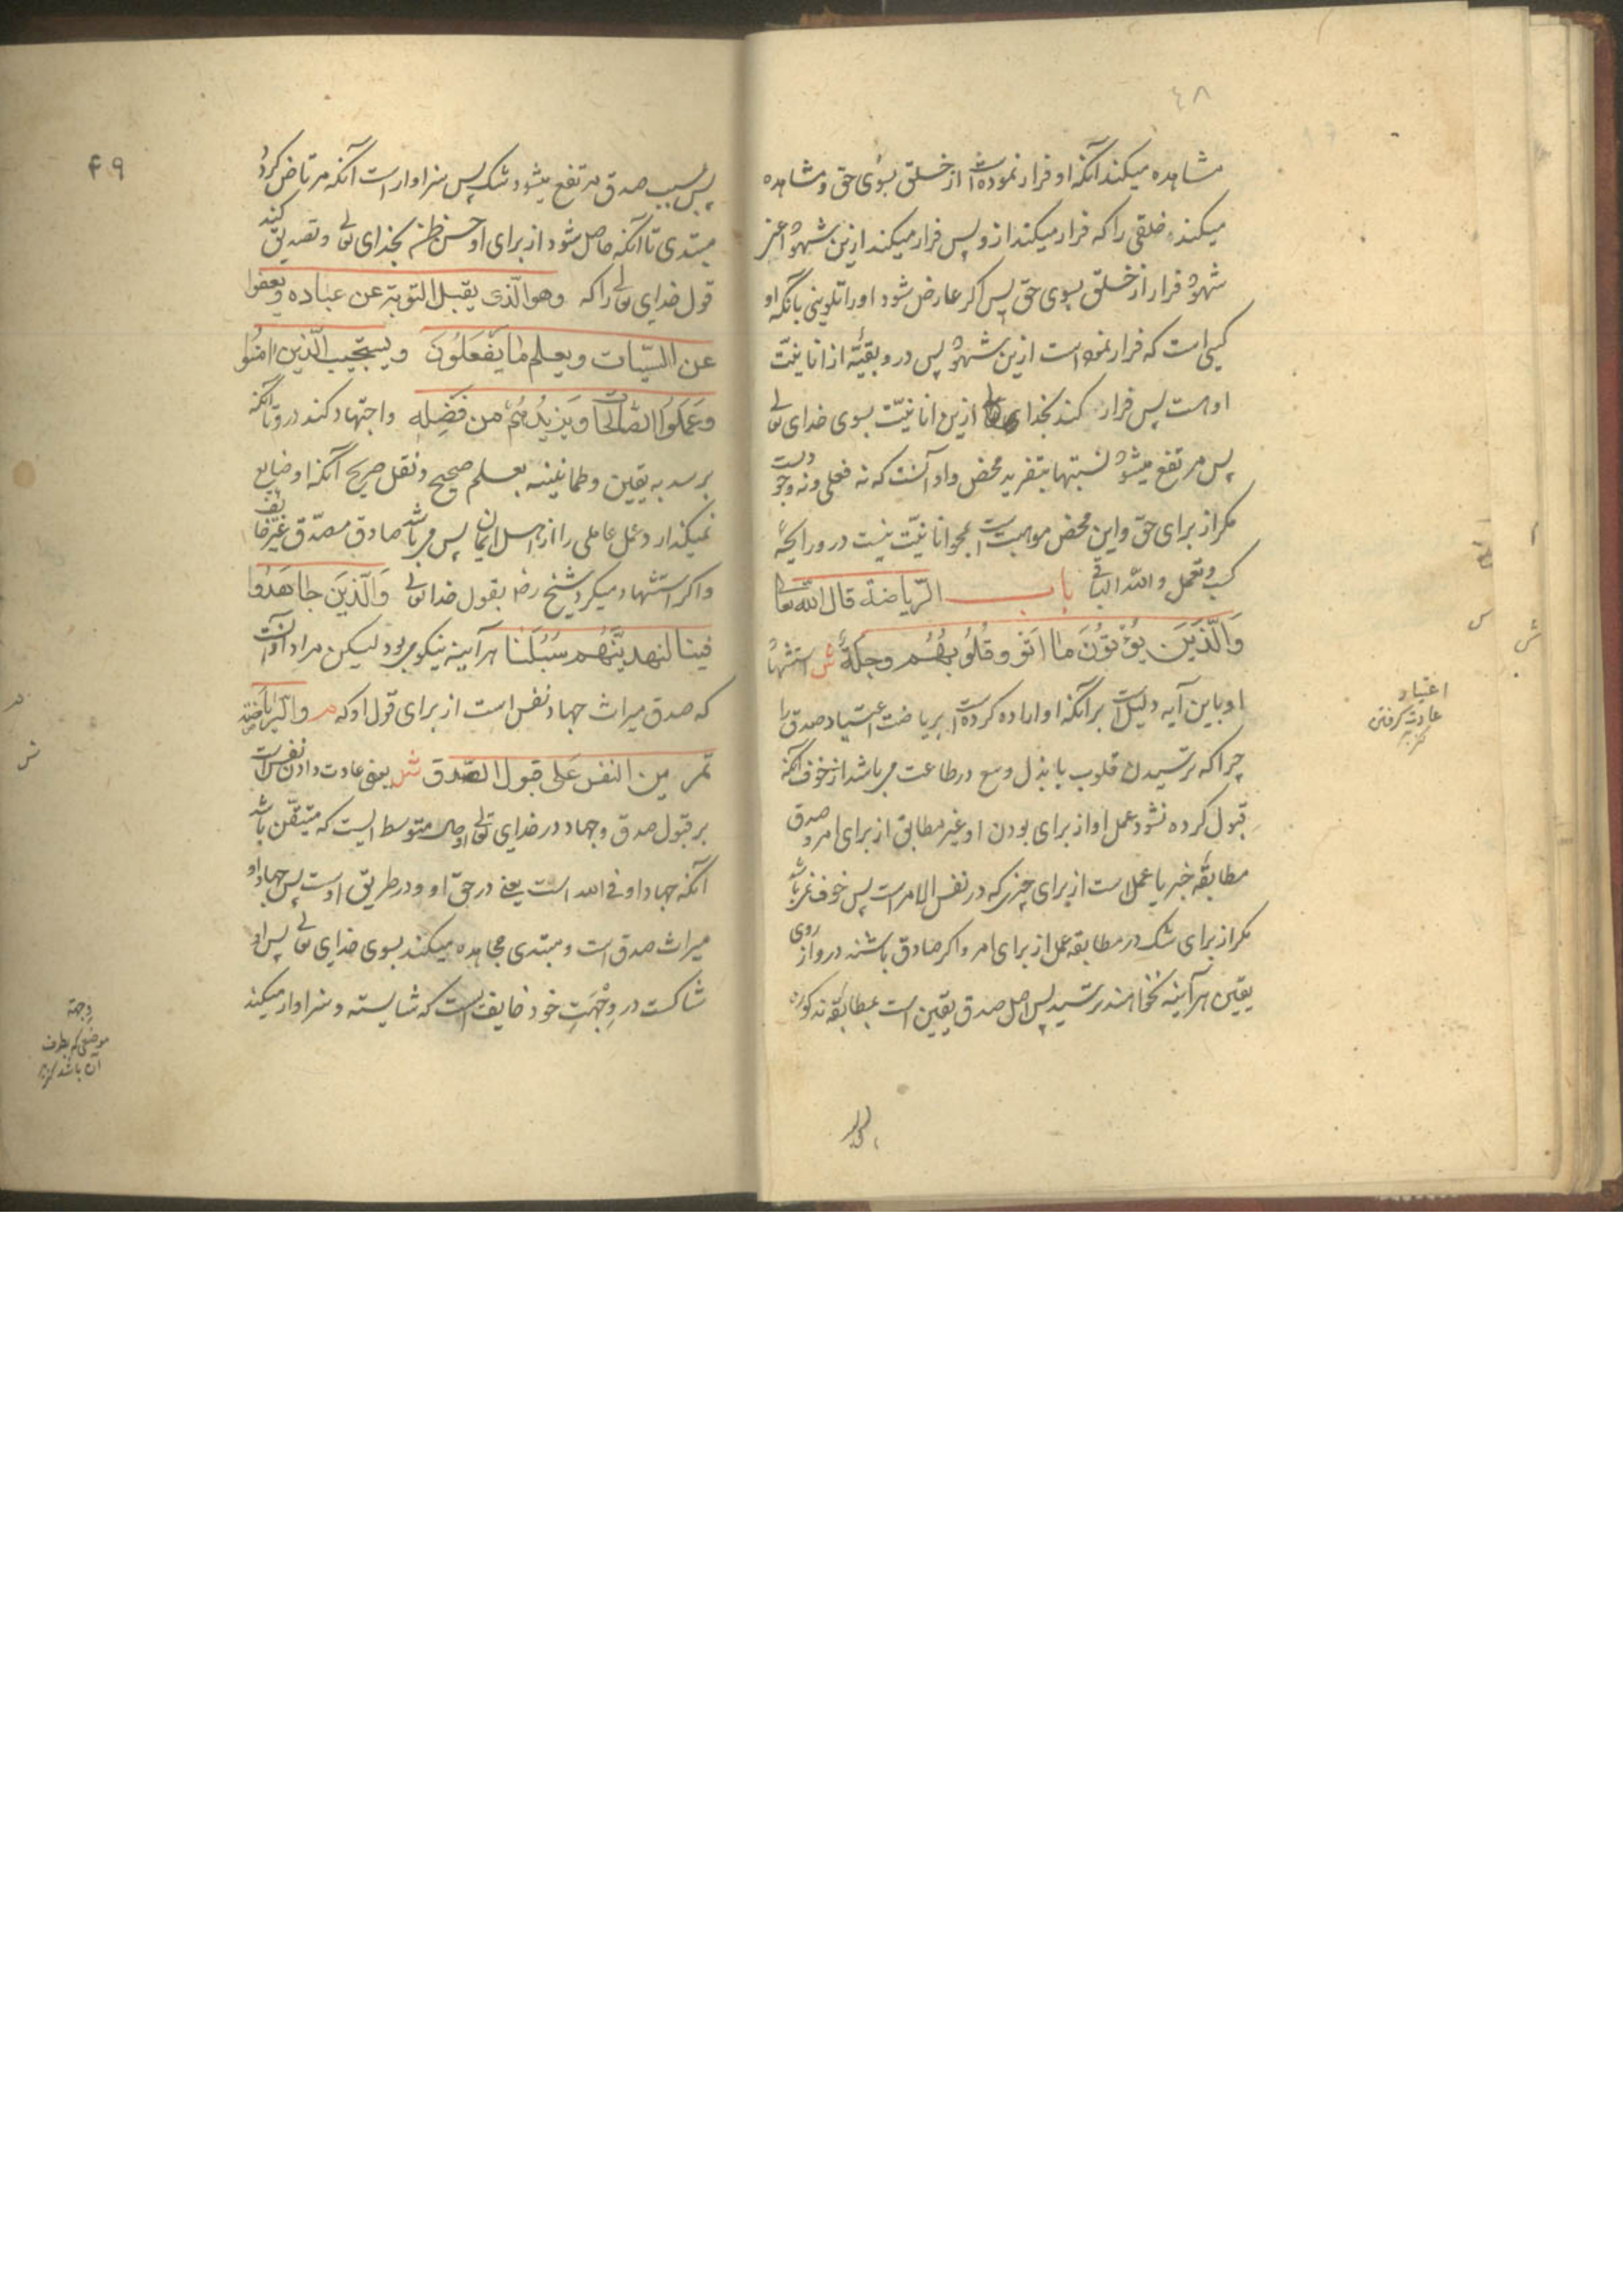 ٤٨
مشاهده میکند آنکه او فرار نموده است از خلق بسوی حق و مشاهده
میکند خلقی را که فرار میکند ازو پس فرار میکند ازین شهود اعنی
شهود فرار از خلق بسوی حق پس اکر عارض شود او را تلوینی بانکه او
کسی است که فرار نموده است ازین شهود پس درو بقیّهٔ از انانیّت
اوست پس فرار کند بخدای تعالی ازین انانیّت بسوی خدای تعالی
پس مرتفع میشود نسبتها بتفرید محض واو آنست که نه فعلی ونه وجودیست
مکر از برای حق واین محض موهبت است بمحو انانیّت نیست درو رایحهٔ
کسب وتعمل والله الباقی باب الرّیاضة قال الله تعالی
وَالَّذِینَ یُؤْتُونَ مَا اٰتَوْ وقُلُوبُهُم وجِلَةٌ ش استشهاد
او باین آیه دلیل است برآنکه او اراده کرده است بریاضت اعتیاد صدق را
چرا که ترسیدن قلوب با بذل وسع در طاعت می باشد از خوف آنکه
قبول کرده نشود عمل او از برای بودن او غیر مطابق از برای امر وصدق
مطابقهٔ خبر یا عمل است از برای چیزی که در نفس الامر است پس خوف نمی باشد
مکر از برای شک در مطابقه عمل از برای امر واکر صادق باشند درو از روی
یقین هر آینه نخواهند ترسید پس اصل صدق یقین است بمطابقهٔ مذکوره
اعتیاد
عادت کرفتن
کنز
٤٩
پس بسبب صدق مرتفع میشود شک پس سزاوار است آنکه مرتاض کردد
مبتدی تا آنکه حاصل شود از برای او حسن ظن بخدای تعالی وتصدیق کند
قول خدای تعالی را که وهو الّذی یقبل التوبة عن عباده ویعفوا
عن السیّئات ویعلم ما یفعَلُونَ ویستجیب الّذین اٰمنُوا
وعَمِلُوا الصّالحات ویَزِیدُهُم من فَضلِه واجتهاد کند درو تا آنکه
برسد به یقین وطمانینه بعلم صحیح ونقل صریح آنکه او ضایع
نمیکذارد عمل عاملی را از اهل ایمان پس می باشد صادق مصدّق غیر خایف
واکر استشهاد میکرد شیخ رض بقول خدا تعالی وَالّذینَ جاهَدُوا
فینا لنهدینّهُم سُبُلَنا هر آینه نیکو می بود لیکن مراد او آنست
که صدق میراث جهاد نفس است از برای قول او که م والرّیاضة
تمرین النفس عَلی قبول الصّدق ش یعنی عادت دادن نفس است
بر قبول صدق وجهاد در خدای تعالی اوصاف متوسط است که متیقّن باشد
آنکه جهاد او فی الله است یعنی در حق او ودر طریق اوست پس جهاد او
میراث صدق است ومبتدی مجاهده میکند بسوی خدای تعالی پس او
شاکست در وِجْهَتِ خود خایف است که شایسته وسزاوار میکند
وجهة
موضعی که بطرف
آن باشد کنز